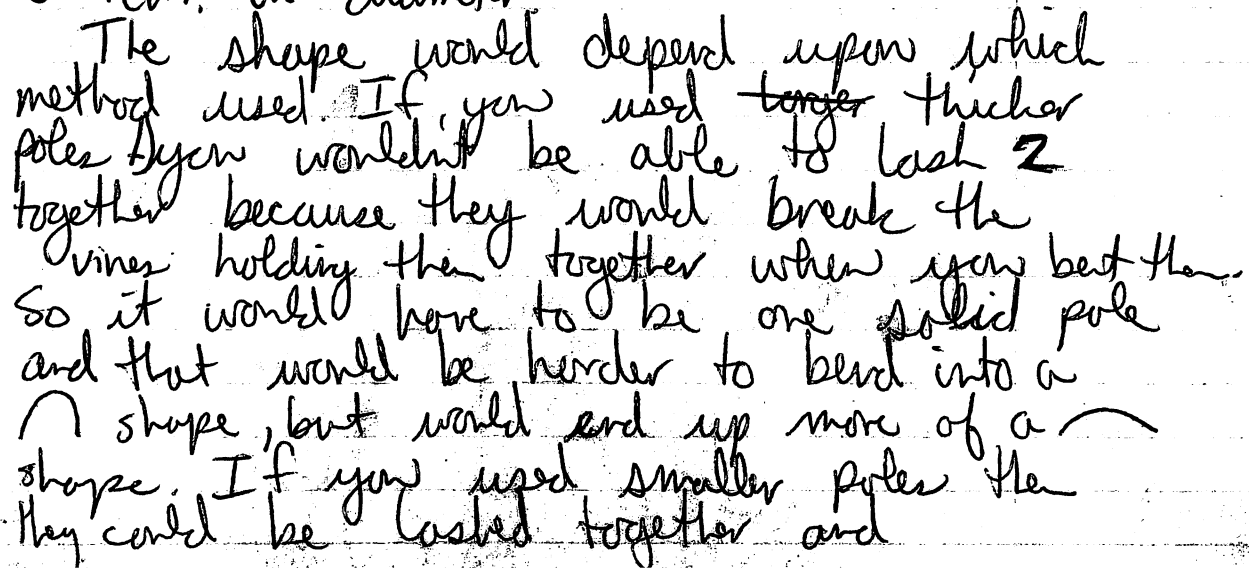 The shape would depend upon which
method used. If you used larger thicker
poles you wouldn't be able to lash 2
together because they would break the
vines holding them together when you bent them.
So it would have to be one solid pole
and that would be harder to bend into a
shape, but would end up more of a
shape. If you used smaller poles then
they could be lashed together and